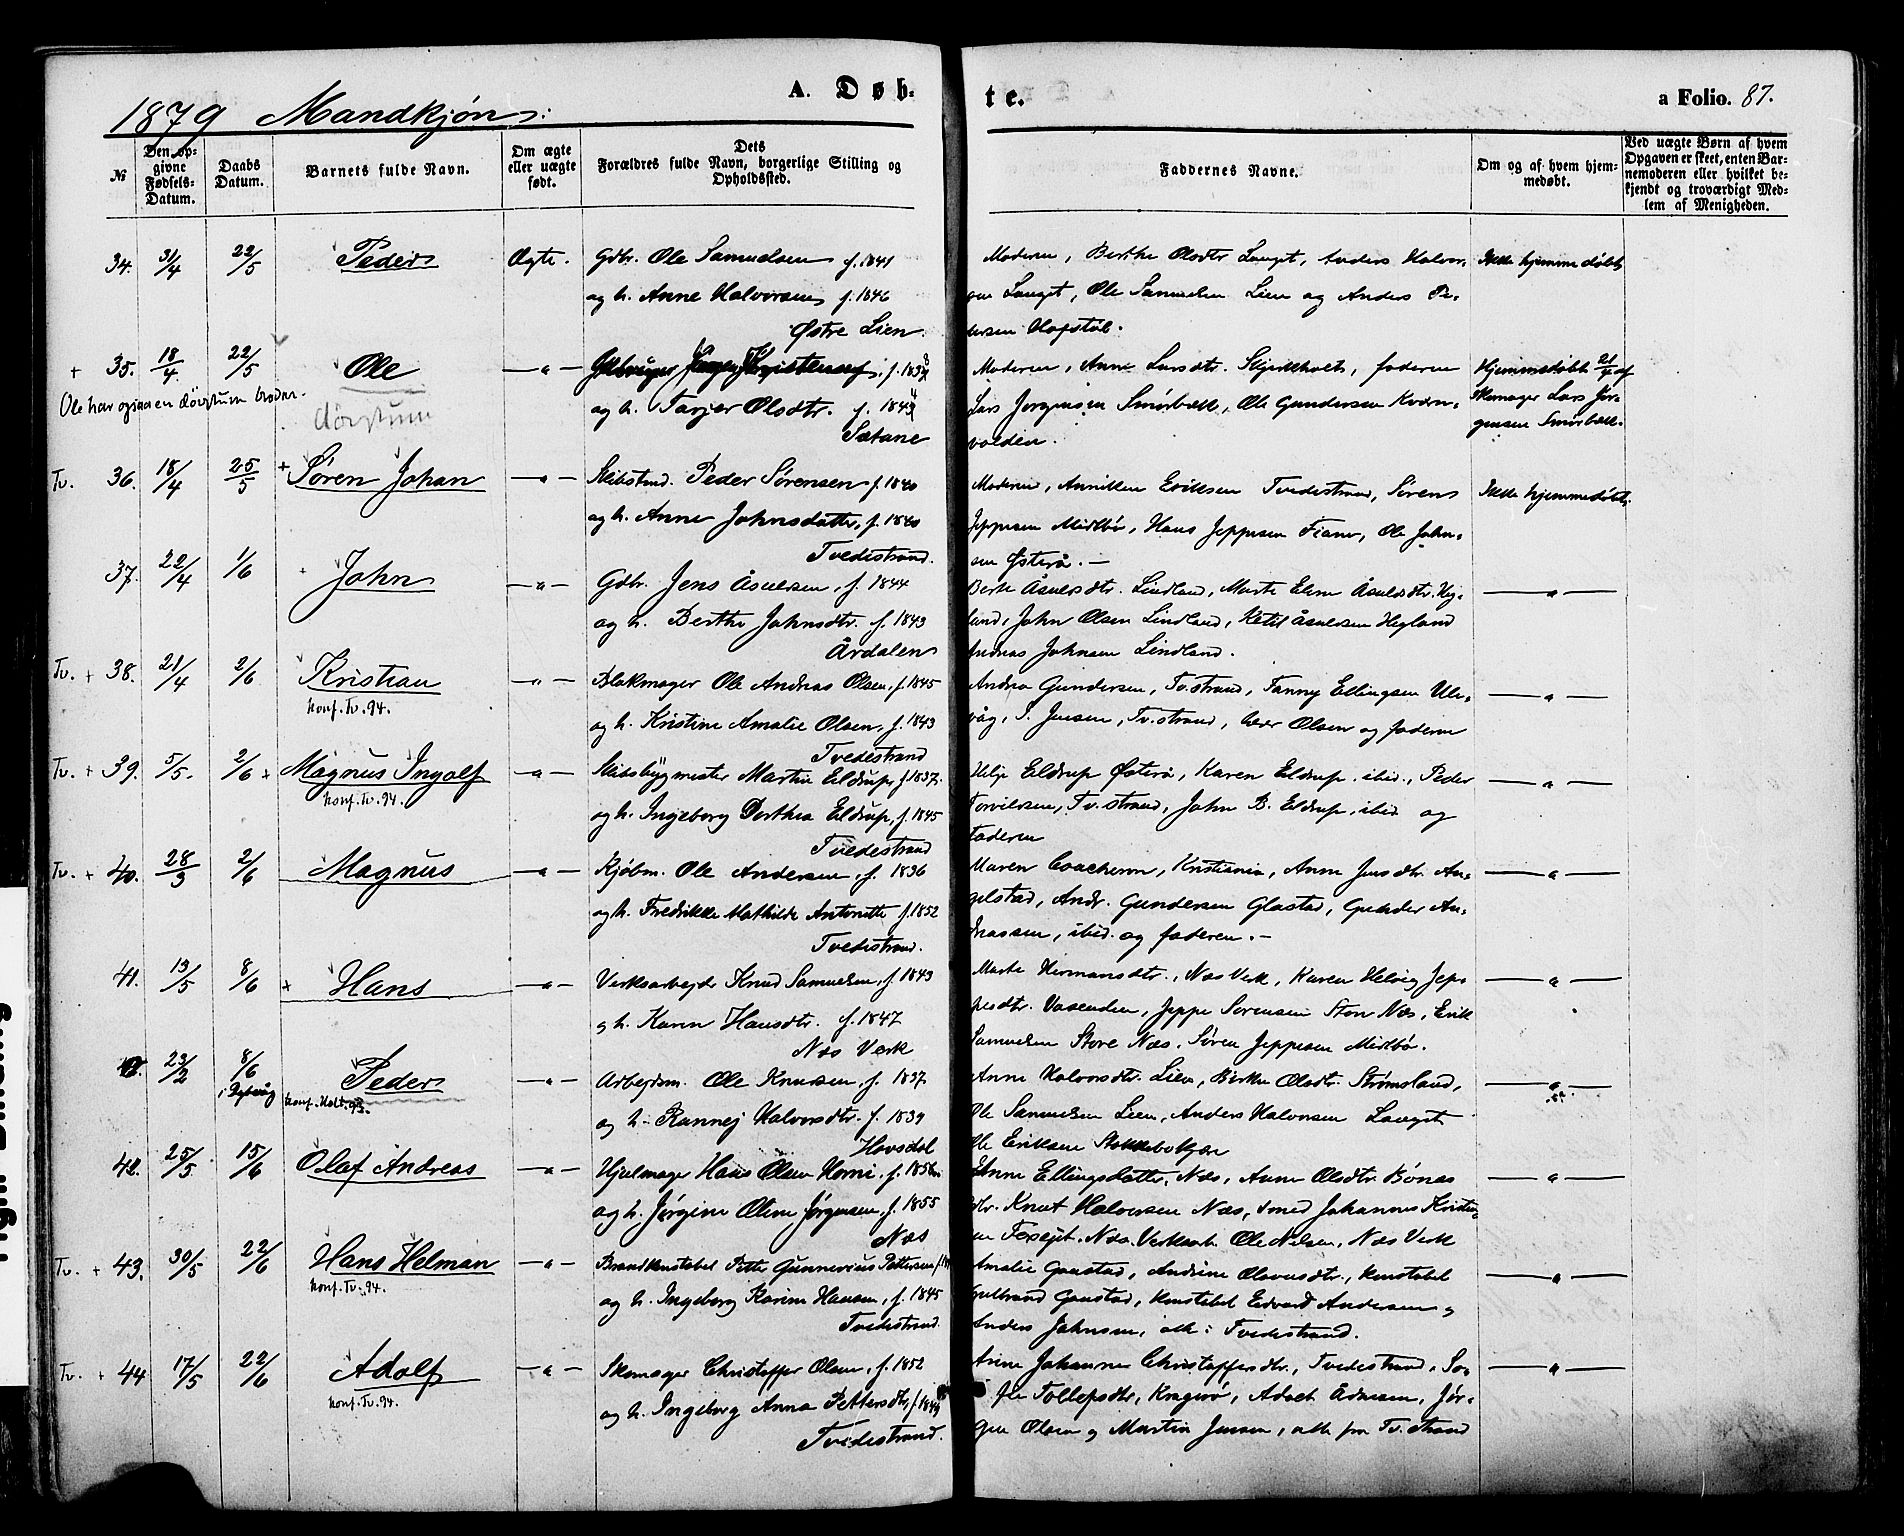 1879 Mandkjøn: A. Døb- te. a Folio. 87.
№
Den op-
givne
Fødsels-
Datum.
Daabs
Datum.
Barnets fulde Navn.
Om ægte
eller uægte
født.
Dets
Forældres fulde Navn, borgerlige Stilling og
Opholdssted.
Faddernes Navne.
Om og af hvem hjem-
medøbt.
Ved uægte Børn af hvem
Opgaven er skeet, enten Bar-
nemoderen eller hvilket be-
kjendt og troværdigt Med-
lem af Menigheden.
34. 31/4 22/5 Peder Ægte. Gbr. Ole Samuelsen f. 1841
og h. Anne Halvorsen f. 1846
Østre Lien.
Moderen, Berthe Olsdtr Lauget, Anders Halvor-
sen Lauget, Ole Samuelsen Lien og Anders Pe-
dersen Hofstøl.
Ikke hjemmedøbt
+ 35. 18/4. 22/5 Ole — " — Jørgen Kristensen f.
Ole har også en døvstum broder.
døvstum
og h. Tarjer Olsdtr. f.
Sætane
Moderen, Anne Larsdtr. Skjerkholt, faderen
Lars Jørgensen Smørbæk, Ole Gundersen Kvern-
volden.
Hjemmedøbt 21/4 af
Skomager Lars Jør-
gensen Smørbæk.
Tv. 36. 18/4 25/5 + Søren Johan — " — Skibstmd. Peder Sørensen f. 1840
og h. Anne Johnsdatter, f. 1840
Tvedestrand.
Moderen, Anniken Eriksen Tvedestrand, Søren
Jeppesen Midbø, Hans Jeppesen Fiane, Ole John-
sen Østerå. —
Ikke hjemmedøbt.
37. 22/4 1/6 John — " — Gdbr. Jens Åsulsen, f. 1844
og h. Berthe Johnsdtr. f. 1843
Årdalen
Berte Åsulsdtr. Lindland, Marte Elene Åsulsdtr. Heg-
land, John Olsen Lindland, Ketil Åsulsen Hegland
Andreas Johnsen Lindland.
— " —
Tv. + 38. 21/4 2/6 Kristian — " — Blokmager Ole Andreas Olsen, f. 1845
konf. Tv. 94.
og h. Kristine Amalie Olsen, f. 1843
Tvedestrand
Andrea Gundersen, Tv.strand, Fanny Ellingsen Ule-
våg, S. Jensen, Tv.strand, Olsen og faderen
— " —
Tv. + 39. 5/5. 2/6 + Magnus Ingolf — " — Skibsbygmester Martin Eldrup, f. 1837
konf. Tv. 94.
og h. Ingeborg Dorthea Eldrup, f. 1845
Tvedestrand
Helje Eldrup Østerå, Karen Eldrup, ibid., Peder
Torvildsen, Tv.strand, John B. Eldrup, ibid og
faderen
— " —
Tv. + 40. 28/3 2/6 Magnus — " — Kjøbm. Ole Andersen, f. 1836
og h. Fredrikke Mathilde Antonette f. 1852
Tvedestrand.
Maren Coucheron, Kristiania, Anne Jensdtr. An-
gelstad, Andr. Gundersen Glastad, Gunder An-
dreassen, ibid. og faderen. —
— " —
41. 13/5 8/6 + Hans — " — Verksarbejdr Knud Samuelsen, f. 1843
og h. Karen Hansdtr. f. 1847
Næs Verk
Marte Hermansdtr., Næs Verk, Karen Helvig Jep-
pesdtr. Vasenden, Jeppe Sørensen Store Næs, Erik
Samuelsen Store Næs, Søren Jeppesen Midbø.
— " —
23/2 8/6 Peder — " — Arbejdsm. Ole Knudsen, f. 1837
i Dybvåg konf. Holt. 93.
og h. Rannej Halvorsdtr. f. 1839
Hovsdal
Anne Halvorsdtr. Lien, Birthe Olsdtr. Strømsland,
Ole Samuelsen Lien, Anders Halvorsen Lauget
Ole Eriksen
— " —
42. 25/5. 15/6 Olaf Andreas — " — Hjulmager Hans Olsen Horne, f. 1856
og h. Jørgine Oline Jørgensen, f. 1855
Næs
Anne Ellingsdatter, Næs, Anne Olsdtr. Bønas
dtr. Knut Halvorsen Næs, Smed Johannes Kristi-
an Næs Verksarb. Ole Nilsen, Næs Verk
— " —
Tv. + 43. 30/5 22/6 Hans Helman — " — Brandkonstabel Petter Gunnerius Pettersen
konf. Tv. 94.
og h. Ingeborg Karine Hansen, f. 1845
Tvedestrand.
Amalie Gaustad, Andrine Olavesdtr., konstabel
Gulbrand Gaustad, konstabel Edvard Andersen og
Anders Johnsen, alle i Tvedestrand.
— " —
Tv. + 44 17/5 22/6 Adolf — " — Skomager Christoffer Olsen, f. 1852
konf. Tv. 94.
og h. Ingeborg Anna Pettersdtr, f.
Tvedestrand.
Anne Johanne Christoffersdtr., Tvedestrand, So-
fie Tollefsdtr, Kragerø, Adolf Ådnesen, Jør-
gen Olsen og Martin Jensen, alle fra Tv.strand
— " —